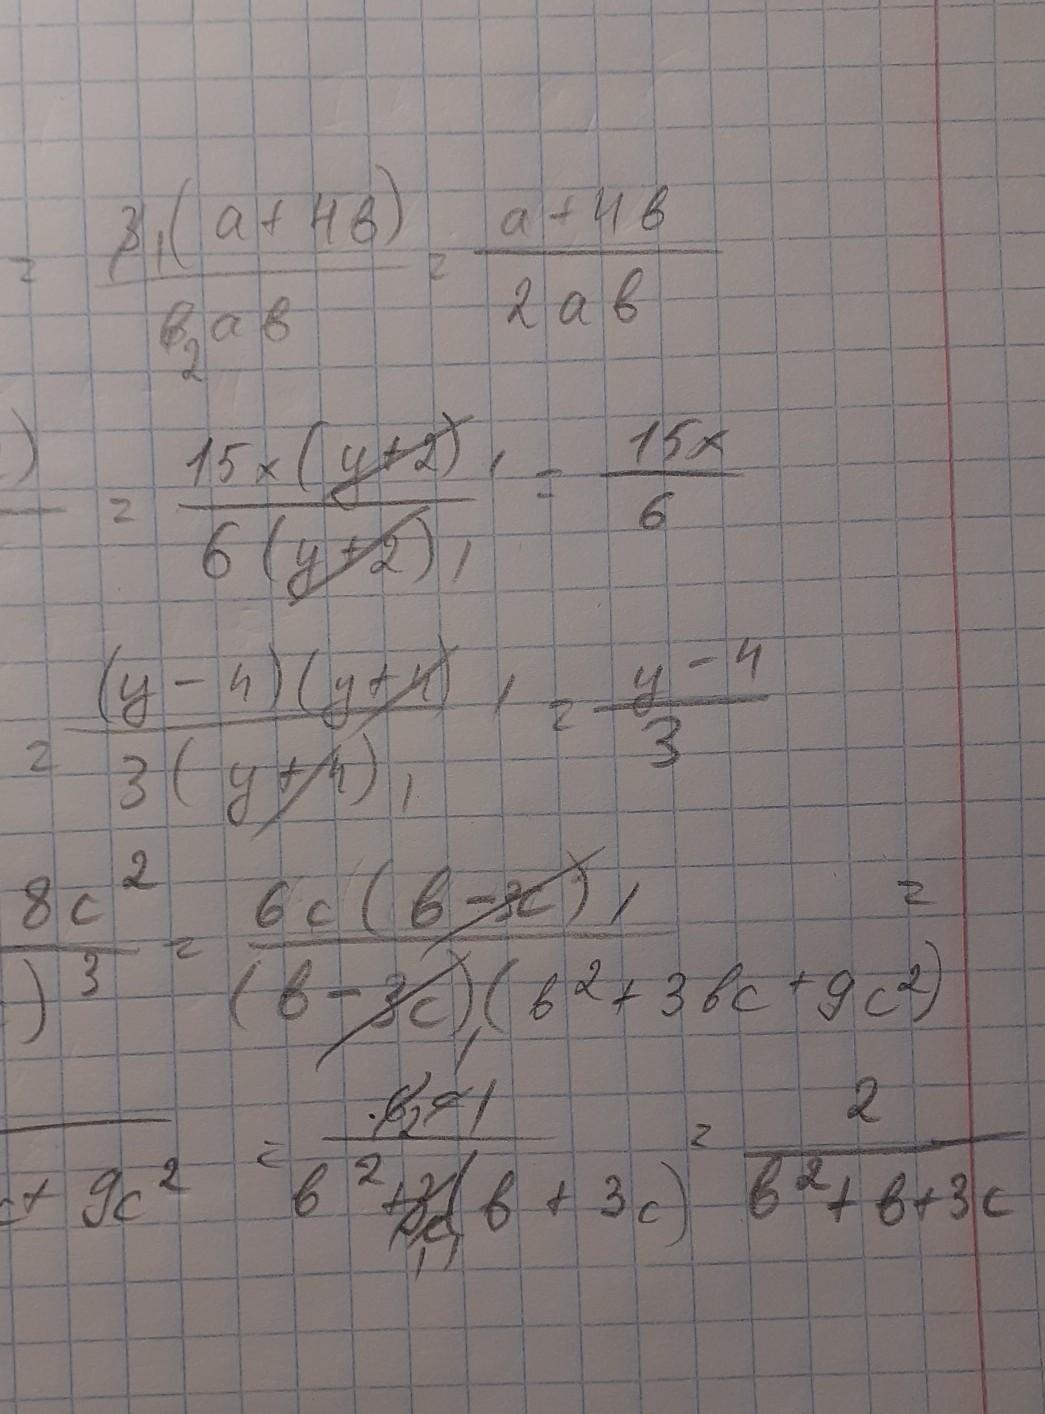 = 3 1 (a + 4в) / 6 2 aв = a + 4в / 2aв
) = 15x (y+2) 1 / 6 (y+2) 1 = 15x / 6
= (y - 4)(y+4) 1 / 3 (y+4) 1 = y - 4 / 3
8c² / )³ = 6c (в - 3c) 1 / (в - 3c) 1 (в² + 3вc + 9c²) =
+ 9c² = 6 2 c 1 / в² + 3c (в + 3c) = 2 / в² + в + 3c